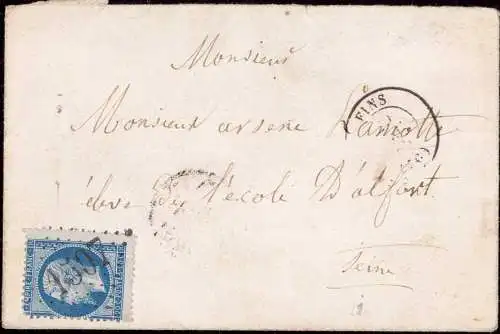 Monsieur
Monsieur arsene Lamotte
élève de l'école D'alfort
Seine
FINS
1507